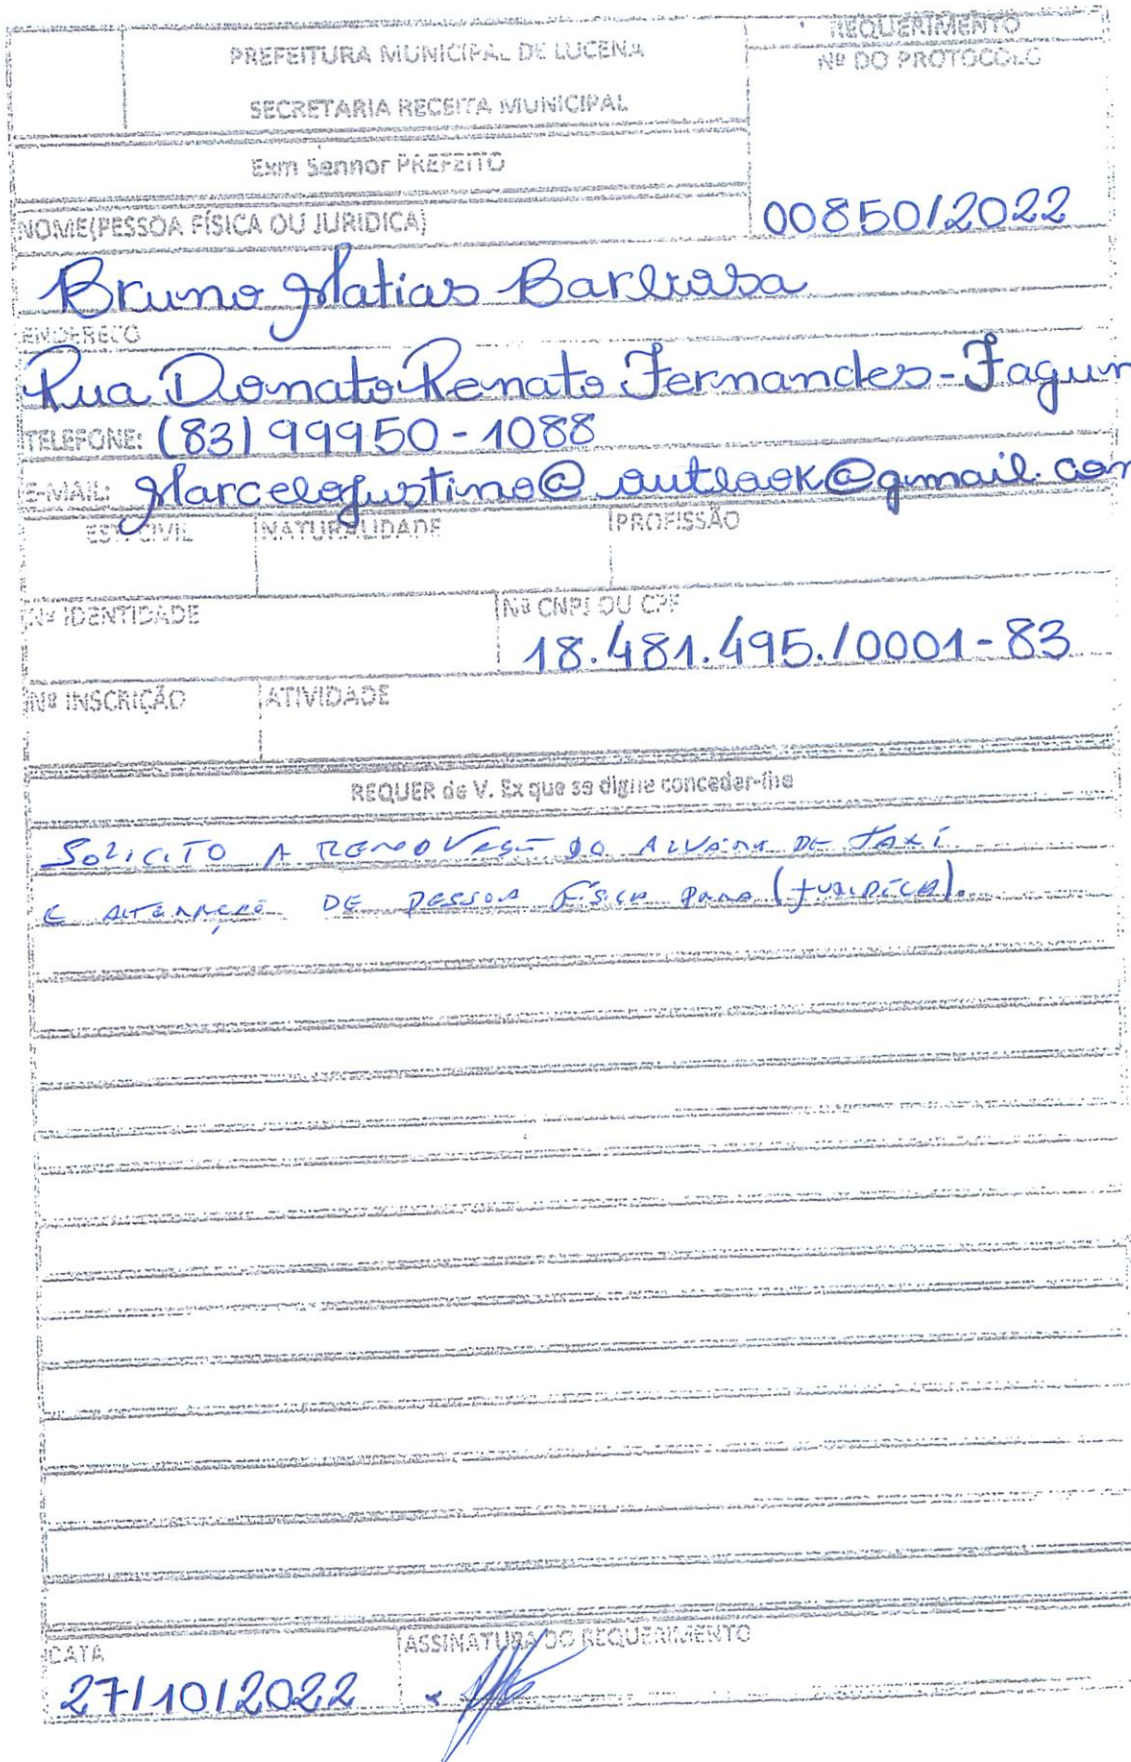 REQUERIMENTO
PREFEITURA MUNICIPAL DE LUCENA
Nº DO PROTOCOLO
SECRETARIA RECEITA MUNICIPAL
Exm Senhor PREFEITO
00850/2022
NOME(PESSOA FÍSICA OU JURIDICA)
Bruno Matias Barbosa
ENDEREÇO
Rua Donato Renato Fernandes - Fagun
TELEFONE: (83) 99950-1088
E-MAIL: Marcelojustino@outlook@gmail.com
EST. CIVIL NATURALIDADE PROFISSÃO
Nº IDENTIDADE Nº CNPJ OU CPF
18.481.495./0001-83
Nº INSCRIÇÃO ATIVIDADE
REQUER de V. Ex que se digne conceder-lhe
SOLICITO A RENOVAÇÃO DO ALVARÁ DE TAXÍ
E ALTERAÇÃO DE PESSOA FÍSICA PARA (JURIDÍCA).
DATA ASSINATURA DO REQUERIMENTO
27/10/2022